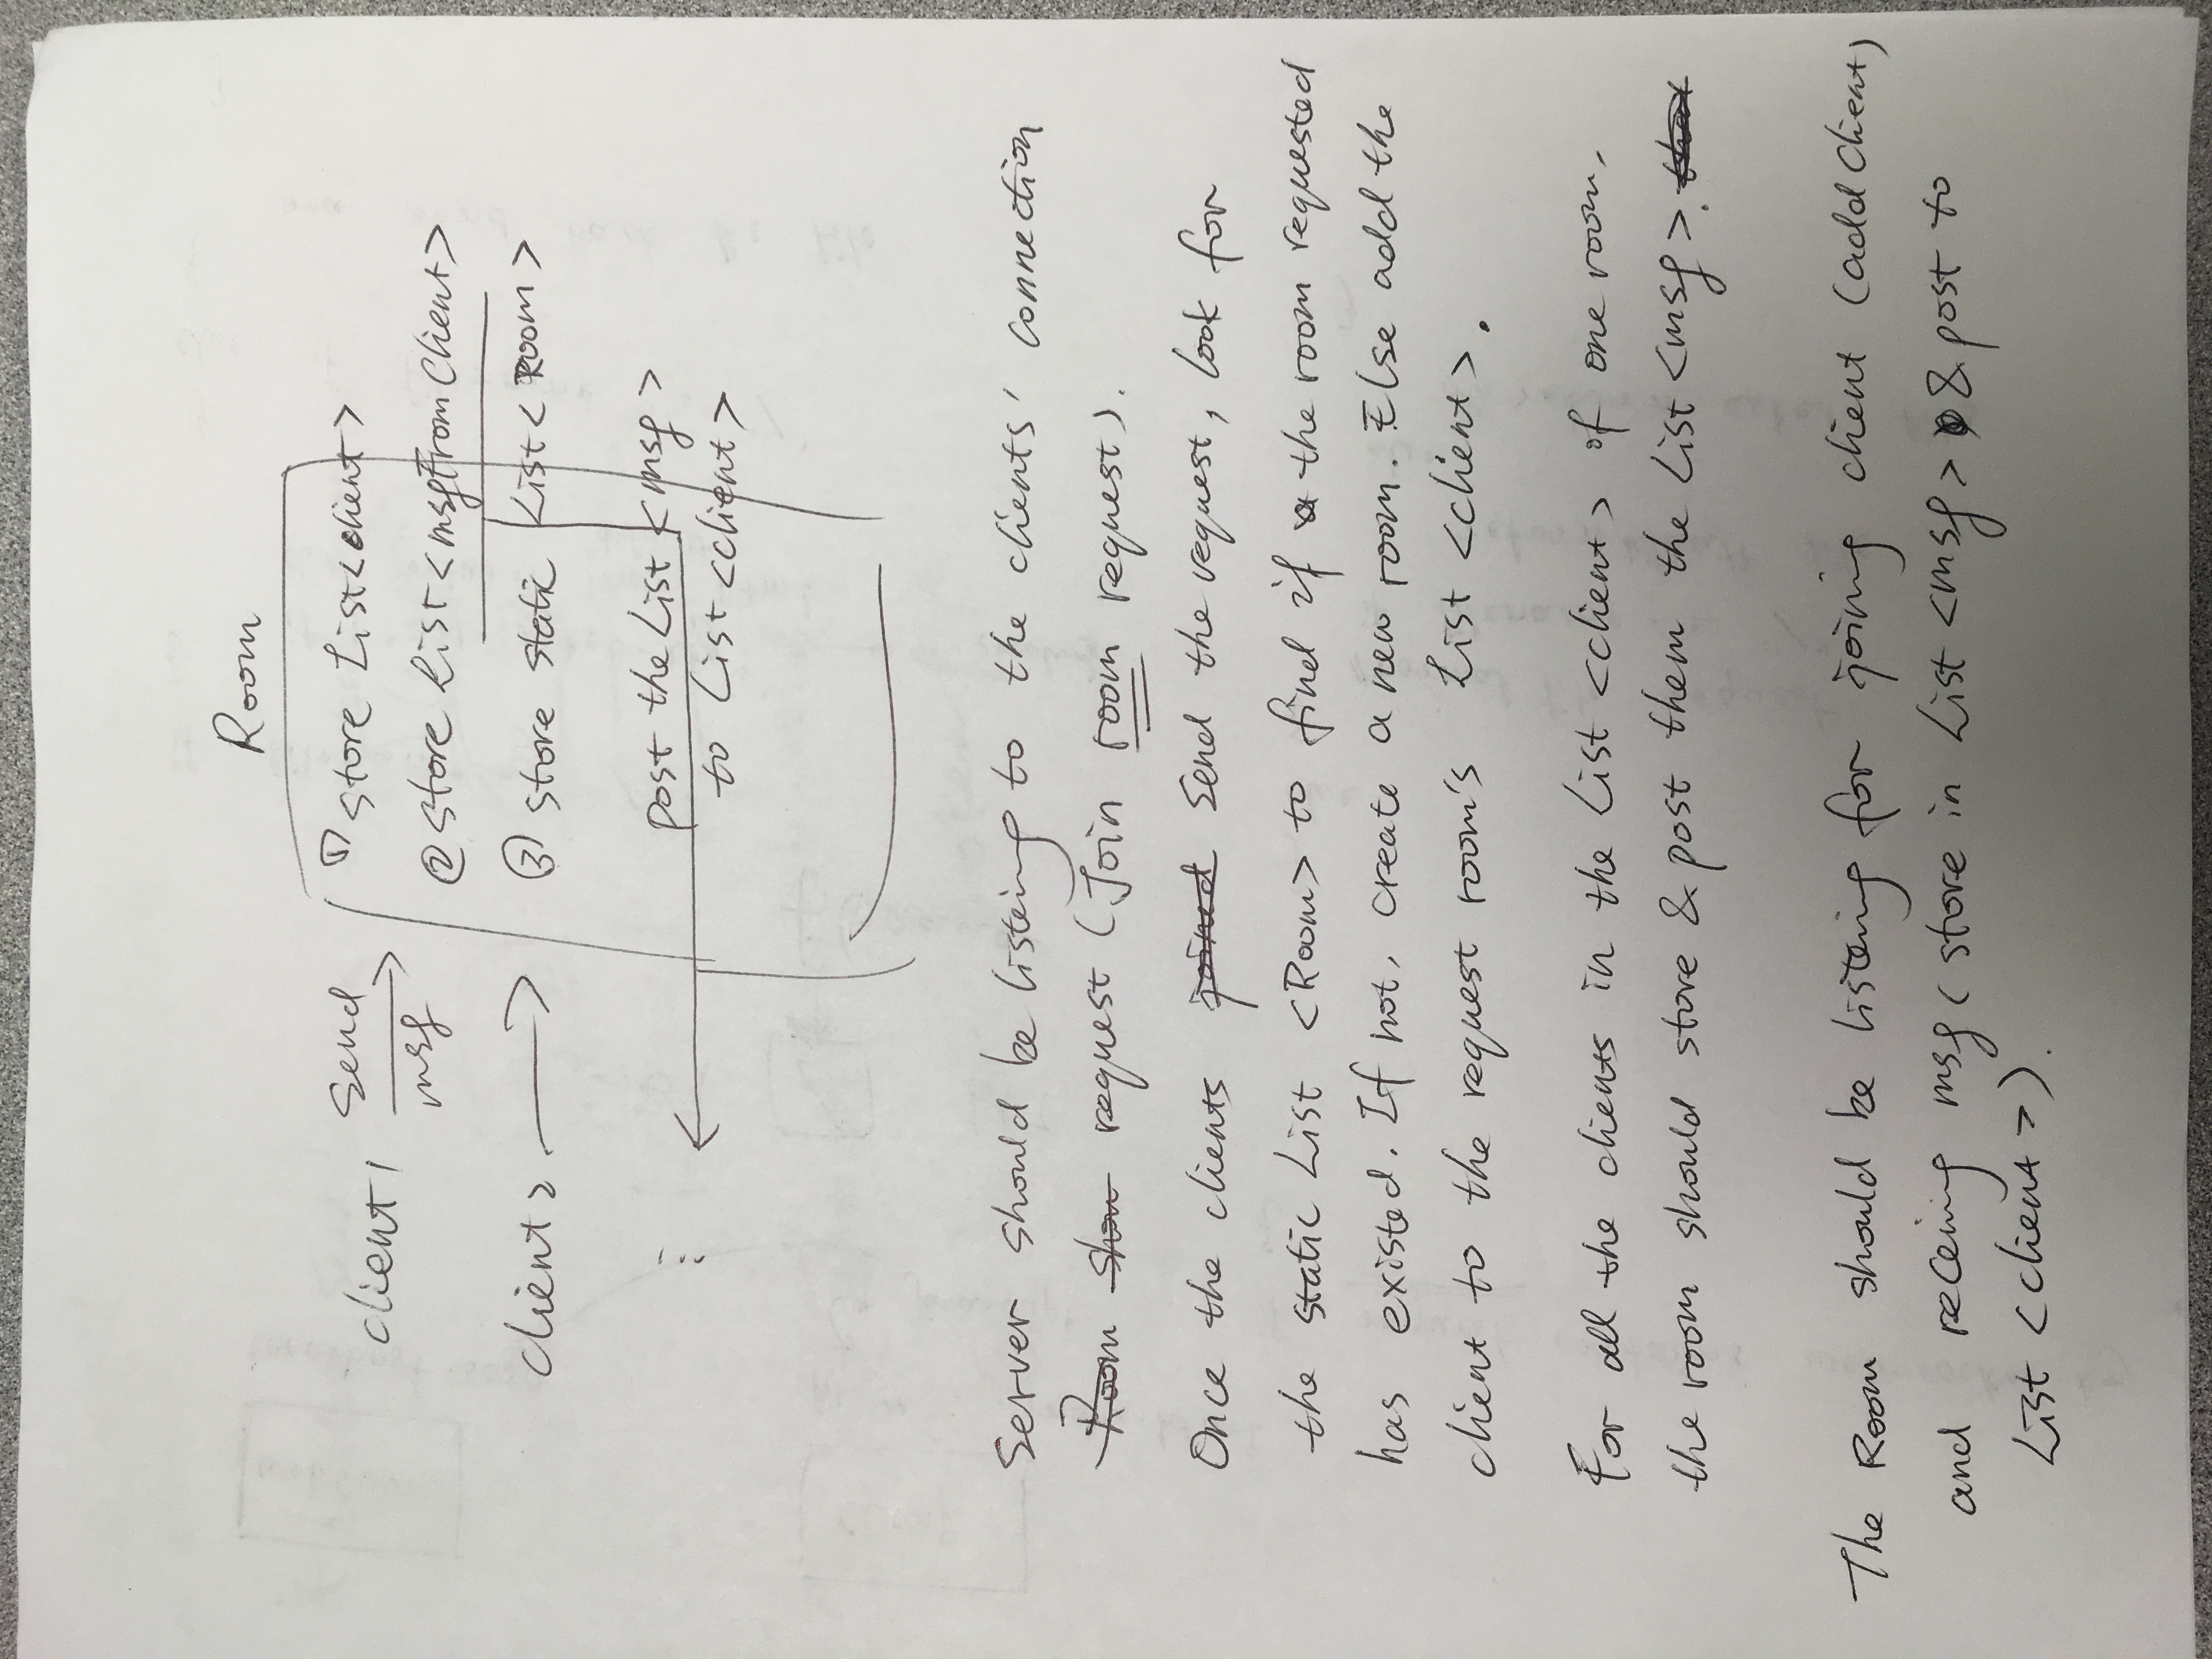 Room
client1 send msg
① store List<client>
② store List<msgFromClient>
client2
③ store static List<Room>
⋮
post the List<msg>
to List<client>
Server should be listeing to the clients' connection
Room show request (Join room request).
Once the clients joined send the request, look for
the static List <Room> to find if a the room requested
has existed. If not, create a new room. Else add the
client to the request room's List <client>.
For all the clients in the List <client> of one room,
the room should store & post them the List <msg>. that
The Room should be listeing for joining client (addClient)
and receiving msg (store in List <msg> & post to
List <client>).